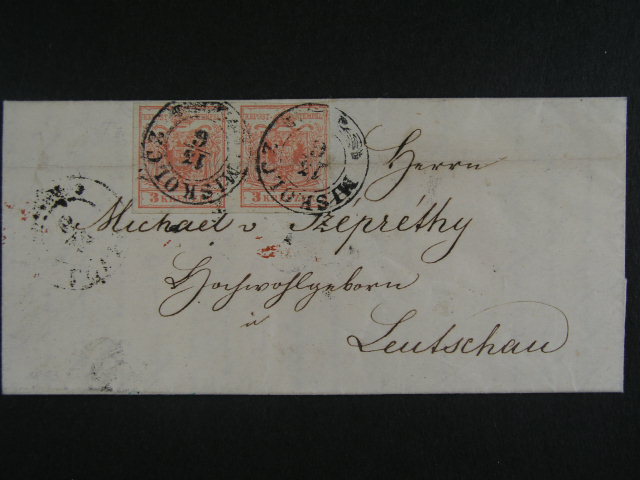 MISKOLCZ 9/12
MISKOLCZ 9/12
3 K
3 K
Herrn
Michael v Szepréthy
Hochwohlgeborn
in
Leutschau